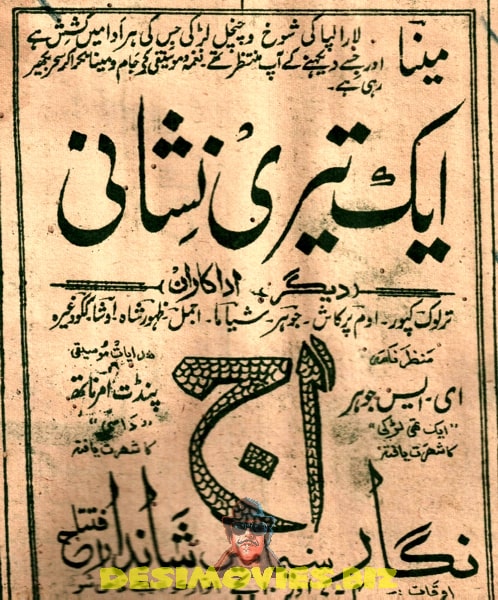 مینا لارا لپا کی شوخ و چنچل لڑکی جس کی ہر ادا میں کشش ہے
اور جسے دیکھنے کے آپ منتظر تھے نغمہ و موسیقی کے جام و مینا
رہی ہے۔
ایک تیری نشانی
(دیگر اداکاران)
ترلوک کپور۔ اوم پرکاش۔ جوہر۔ شیاما۔ اجمل۔ ظہور شاہ۔ اوشا۔ ککو وغیرہ
منظر نامہ
ای۔ ایس جوہر
"ایک تھی لڑکی"
کا شہرت یافتہ
موسیقی
پنڈت امرناتھ
"داسی"
کا شہرت یافتہ
آج
نگار سنیما شاندار افتتاح
اوقات
DESIMOVIES.BIZ